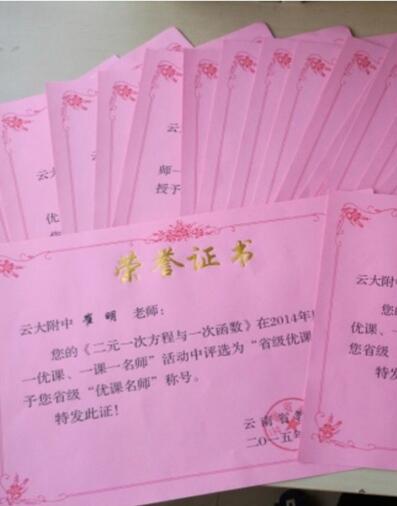 云大附
师一
授予
优课
荣誉证书
云大附中 崔明 老师：
您的《二元一次方程与一次函数》在2014年
一优课、一课一名师”活动中评选为“省级优课
予您省级“优课名师”称号。
特发此证！
云南省
二〇一五年
云大附中
一优课、
您省级
特发